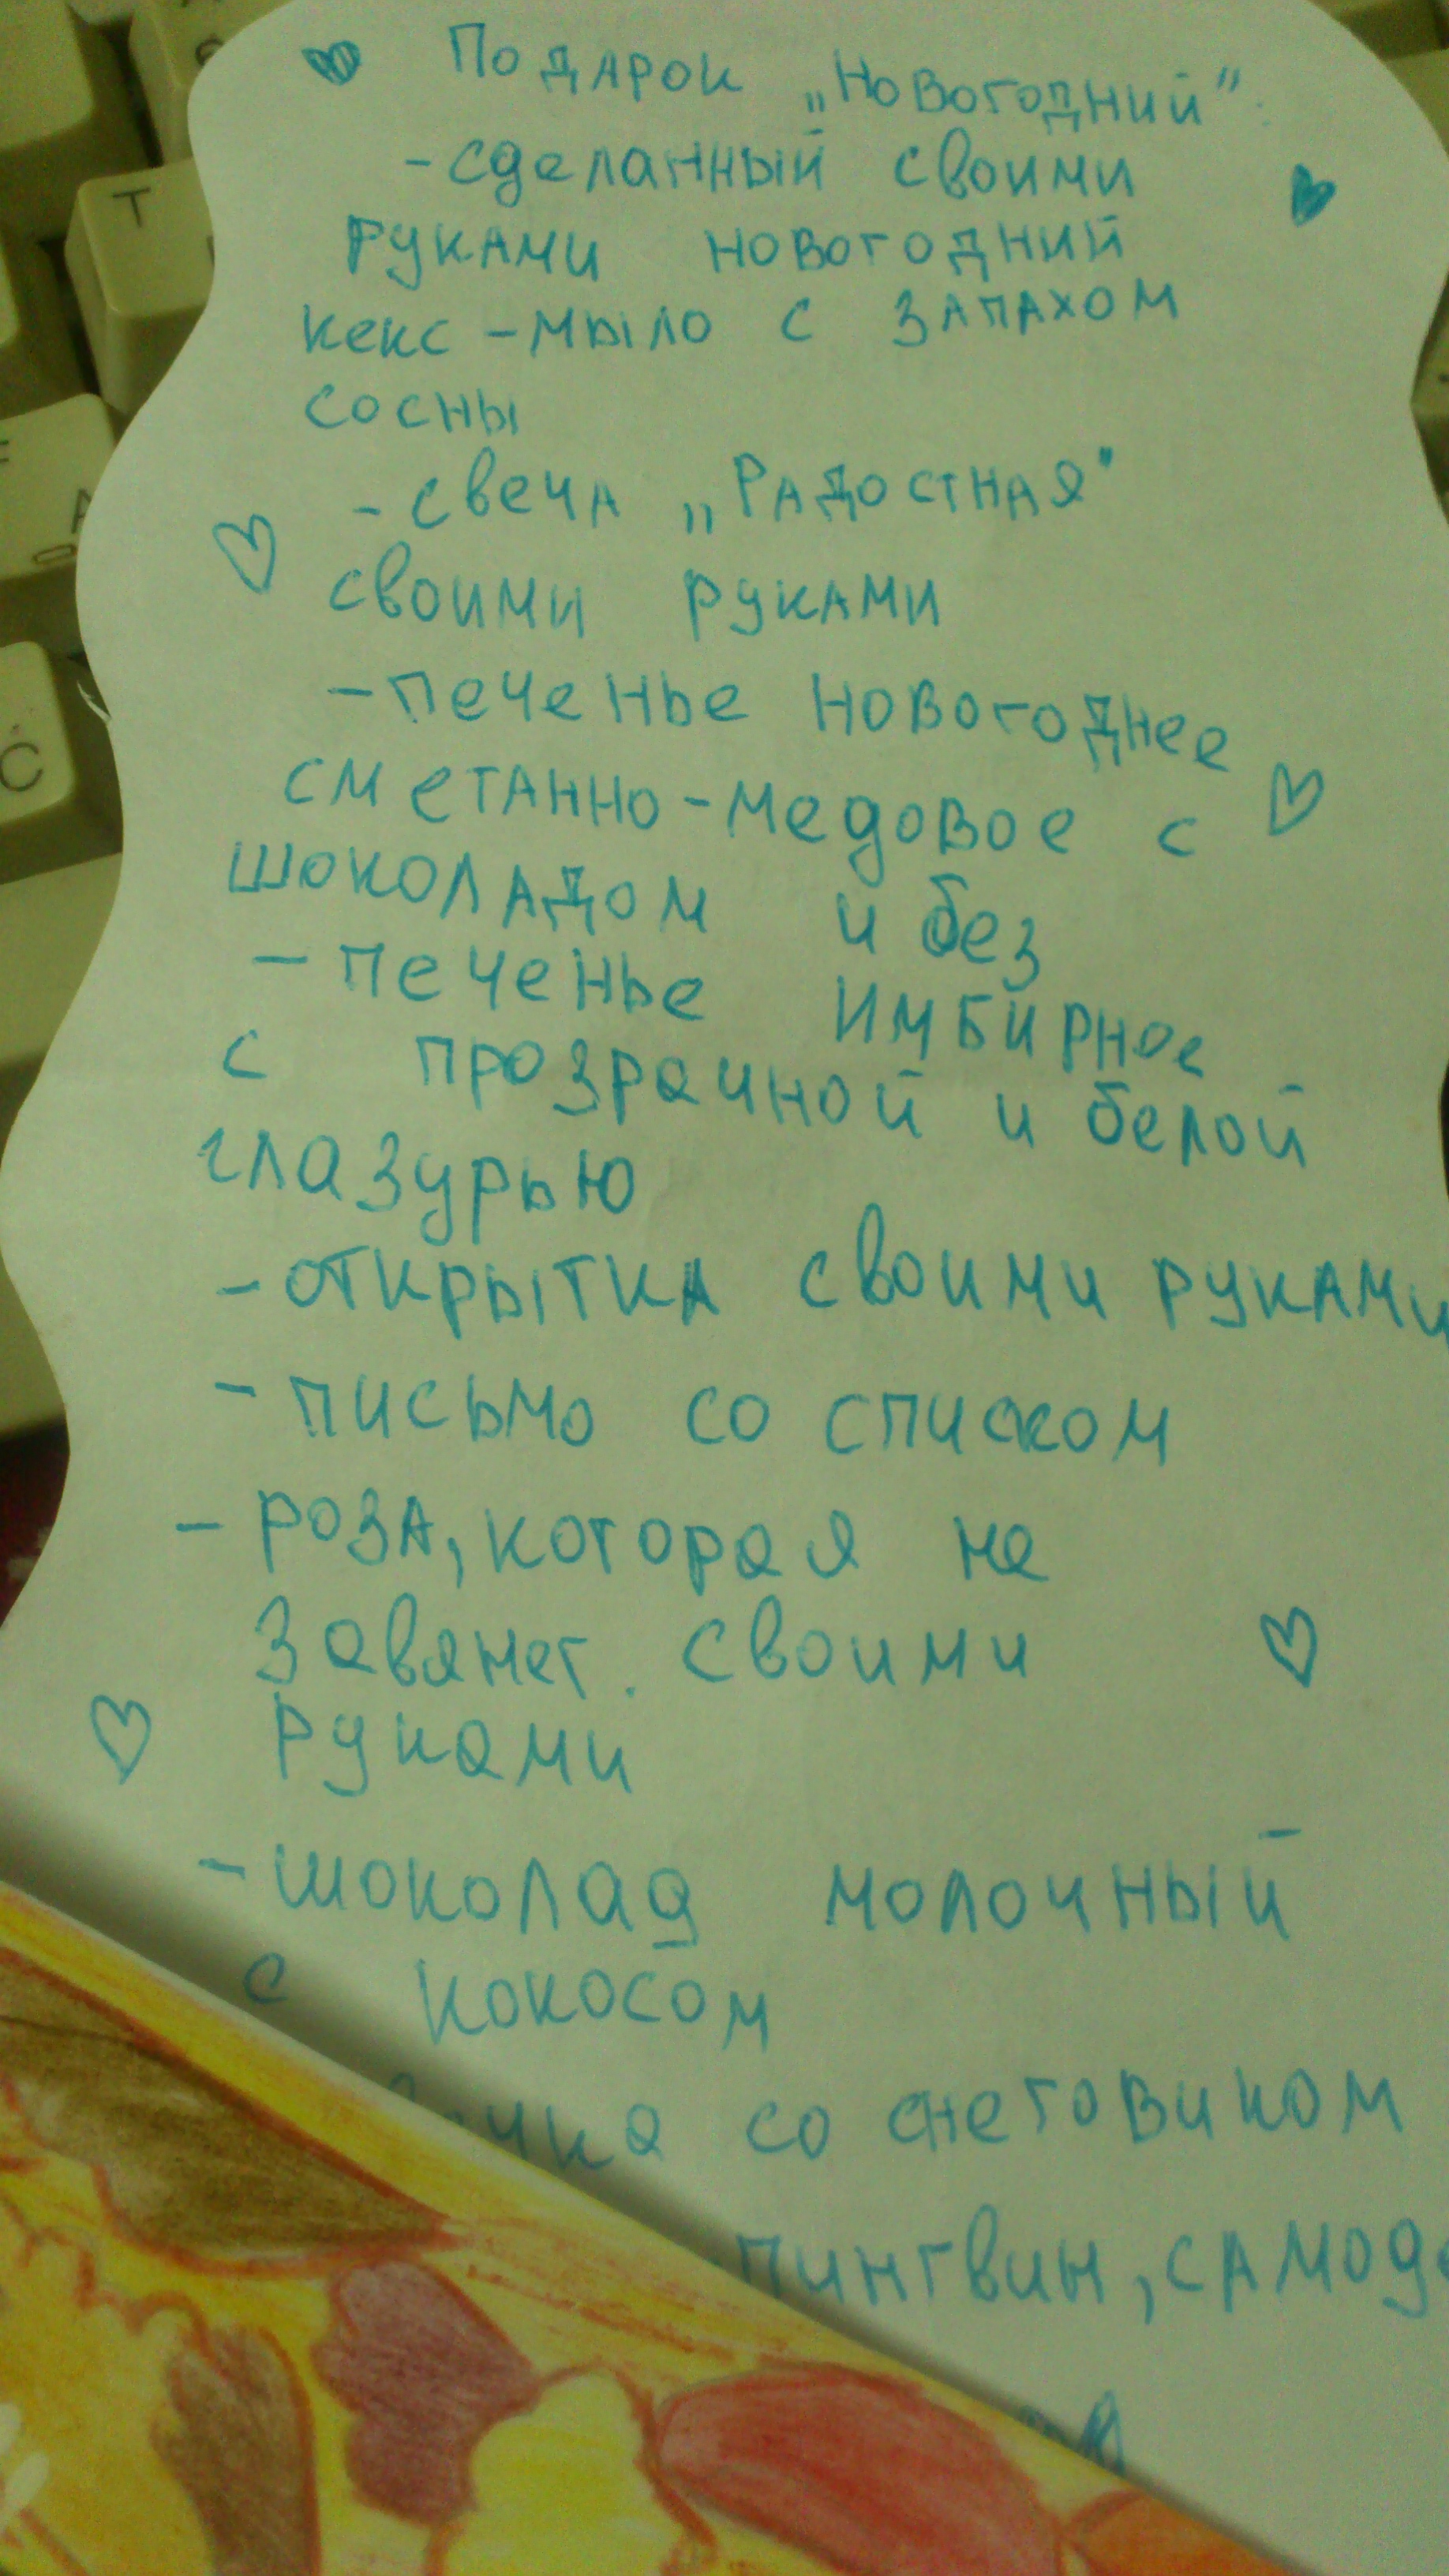 Подарок „Новогодний":
-сделанный своими
руками новогодний
кекс-мыло с запахом
сосны
-свеча „Радостная"
своими руками
-печенье новогоднее
сметанно-медовое с
шоколадом и без
-печенье имбирное
с прозрачной и белой
глазурью
-открытка своими руками
-письмо со списком
-роза, которая не
завянет. своими
руками
-шоколад молочный
с кокосом
со снеговиком
пингвин,